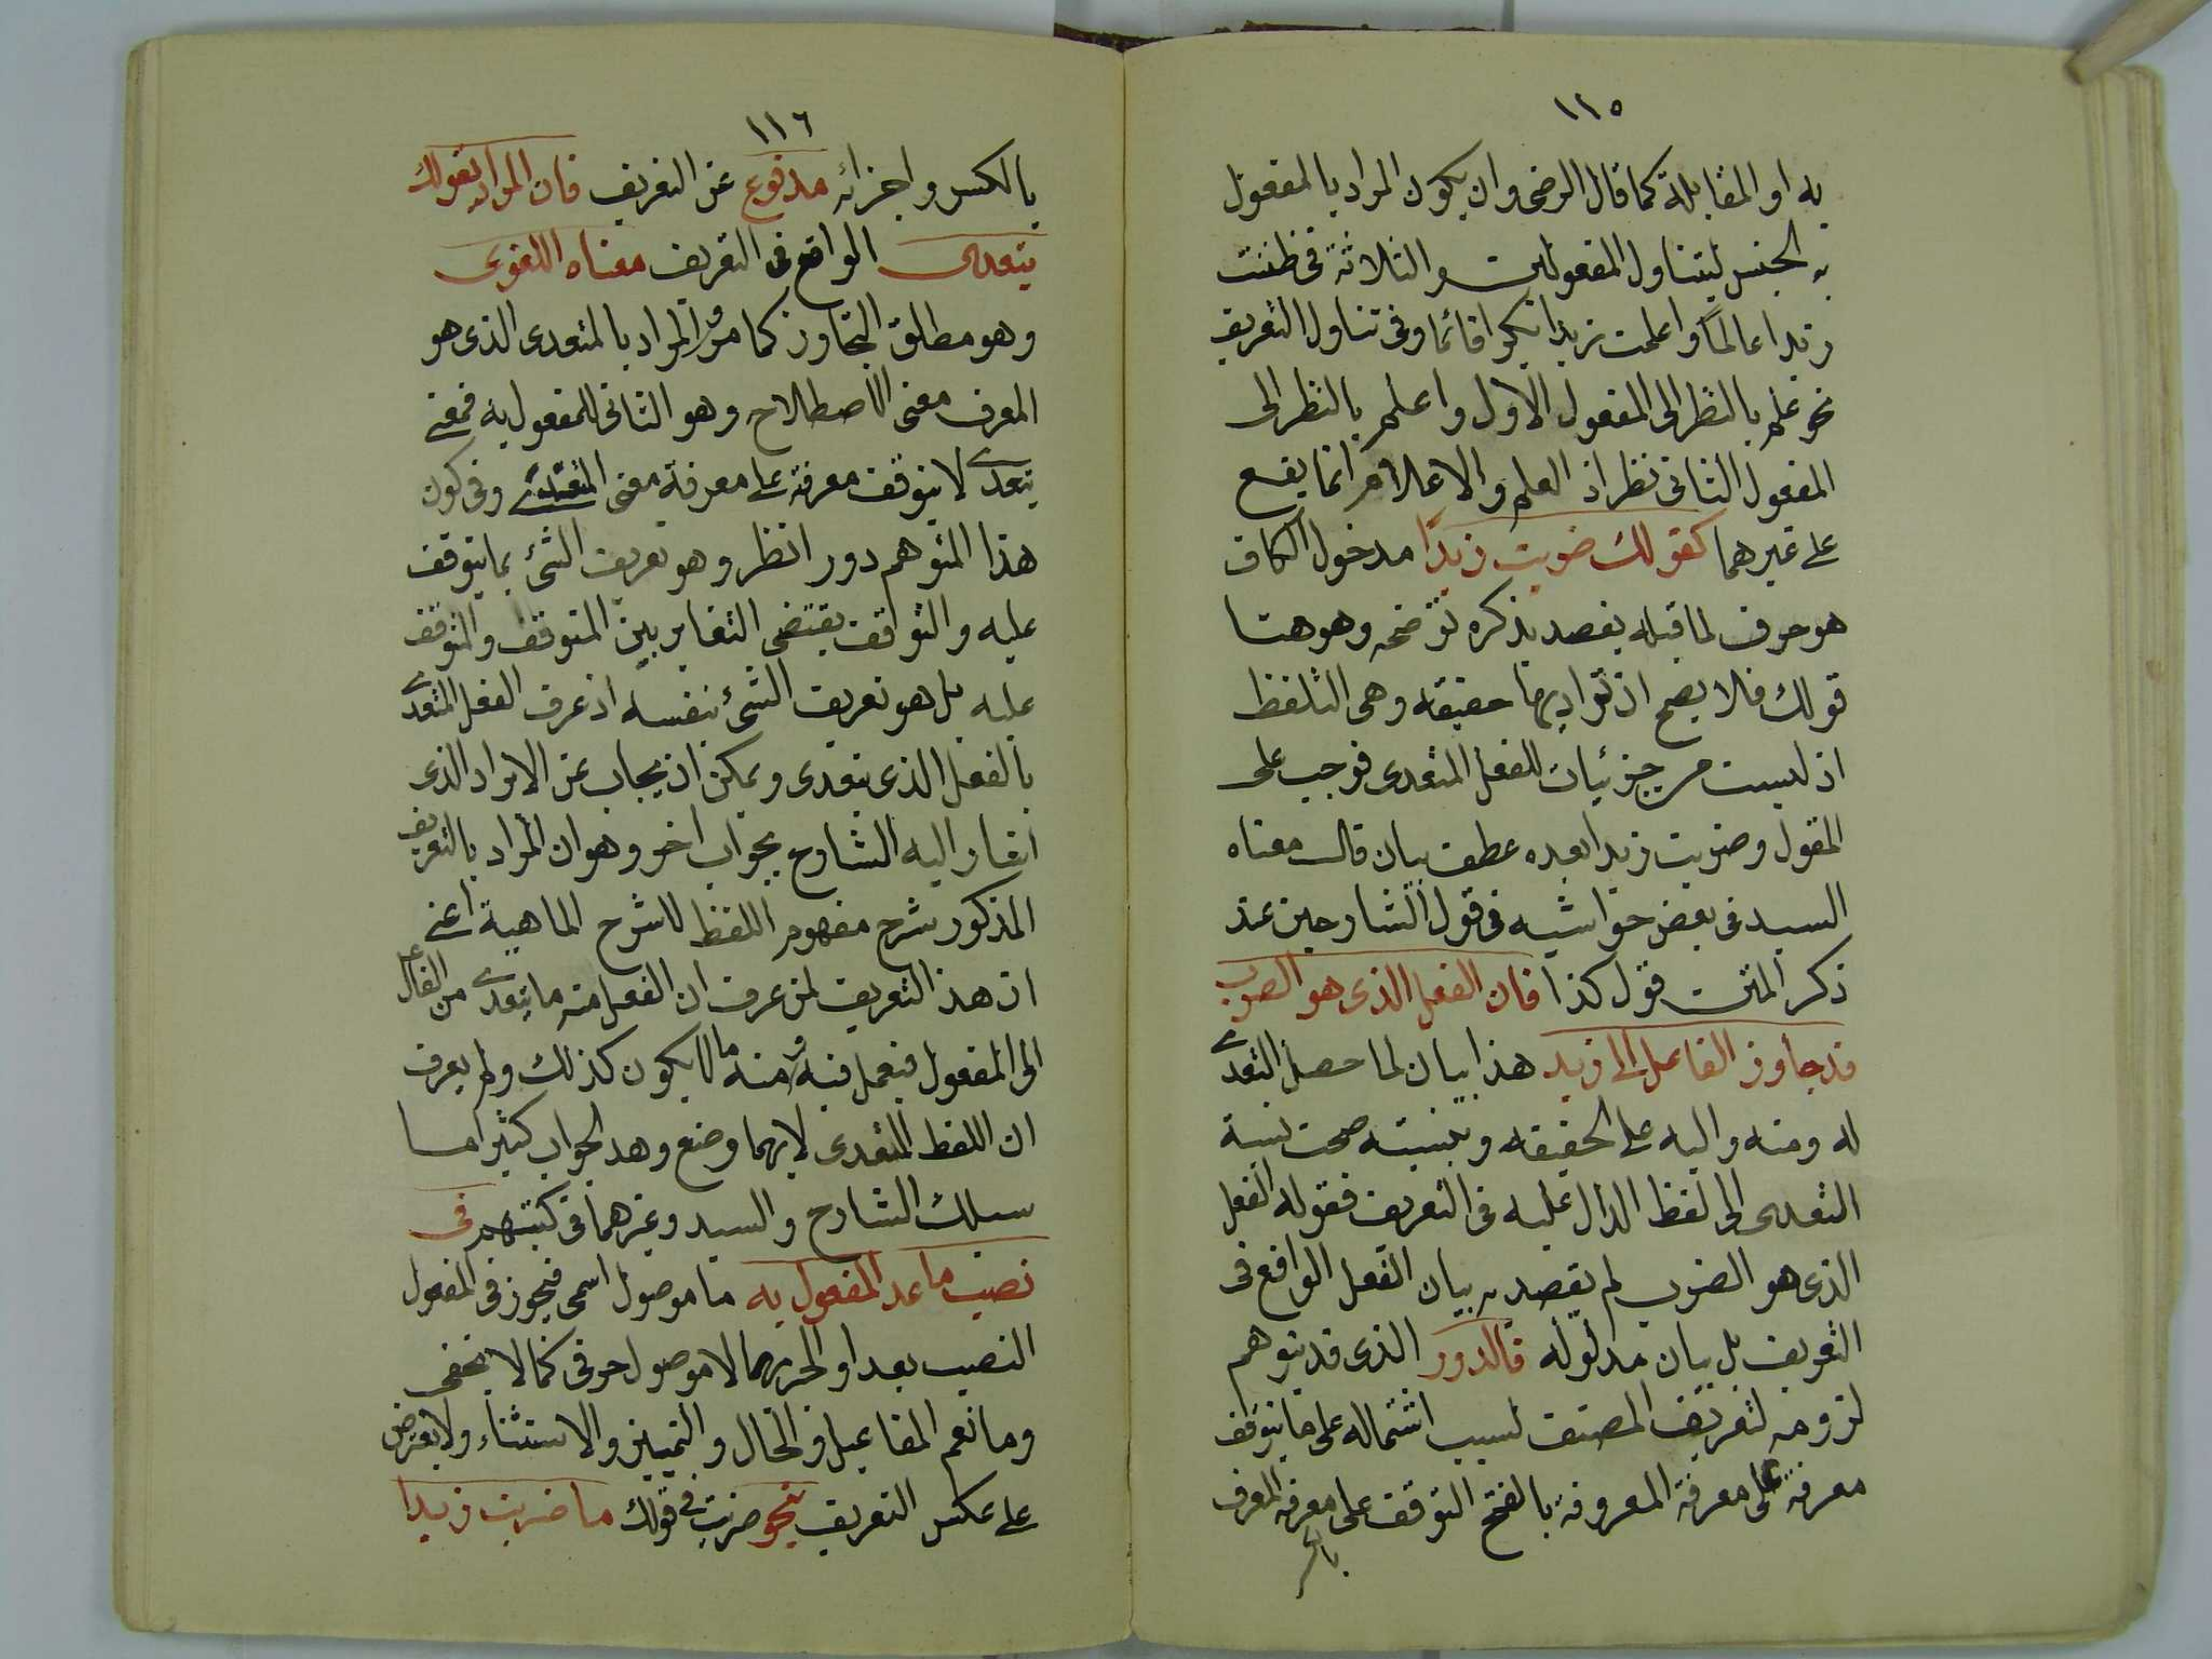 ١١٥
به او المقابلة كما قال الرضى وان يكون المراد بالمفعول
به الجنس ليتناول المفعولين والثلاثة فى ظننت
زيدا عالما واعلمت زيدا بكرا قائما وفى تناول التعريف
نحو علم بالنظر الى المفعول الاول واعلم بالنظر الى
المفعول الثانى نظر اذ العلم والاعلام انما يقع
على غيرهما كقولك ضربت زيدًا مدخول الكاف
هو حرف لما قبله يقصد بذكره توضحه وهو هنا
قولك فلا يصح ان تراد بها حقيقة وهى التلفظ
اذ ليست من جزئيات للفعل المتعدى فوجب على
المقول وضربت زيدا بعده عطف بيان قال معناه
السيد فى بعض حواشيه فى قول الشارحين عند
ذكر المتن قول كذا فان الفعل الذى هو الضرب
قد جاوز الفاعل الى زيد هذا بيان لما حصل التعدى
له ومنه واليه على الحقيقة وبنسبته صحت نسبة
التعدى الى لفظ الدال عليه فى التعريف فقوله الفعل
الذى هو الضرب لم يقصد به بيان الفعل الواقع فى
التعريف بل بيان مدلوله فالدور الذى قد يتوهم
لزومه لتعريف المصنف لسبب اشتماله على ما يتوقف
معرفته على معرفة المعروفة بالفتح التوقف على معرفة المعرف
١١٦
بالكسر واجزائه مدفوع عن التعريف فان المراد بقولك
يتعدى الواقع فى التعريف معناه اللغوى
وهو مطلق التجاوز كما مر والمراد بالمتعدى الذى هو
المعرف معنى الاصطلاح وهو الثانى للمفعول به فمعنى
يتعدى لا يتوقف معرفته على معرفة معنى المتعدى وفى كون
هذا المتوهم دور انظر وهو تعريف الشئ بما يتوقف
عليه والتواقف يقتضى التغاير بين المتوقف والمتوقف
عليه بل هو تعريف الشئ بنفسه اذ عرف الفعل المتعدى
بالفعل الذى يتعدى ويمكن ان يجاب عن الايراد الذى
اشار اليه الشارح بجواب اخر وهو ان المراد بالتعريف
المذكور شرح مفهوم اللفظ لا شرح الماهية اعنى
ان هذا التعريف لمن عرف ان الفعل منه ما يتعدى من الفاعل
الى المفعول فيعمل فيه ومنه ما لا يكون كذلك ولم يعرف
ان اللفظ المتعدى لايهما وضع وهذ الجواب كثيرا ما
سلك الشارح والسيد وغيرهما فى كتبهم فى
نصب ما عد المفعول به ما موصول اسمى فيجوز فى المفعول
النصب بعد او الجر بهما لا موصول حرفى كما لا يخفى
وما نعم المفاعيل والحال والتمييز والاستثناء ولا يعترض
على عكس التعريف بنحو ضربت فى قولك ما ضربت زيدا